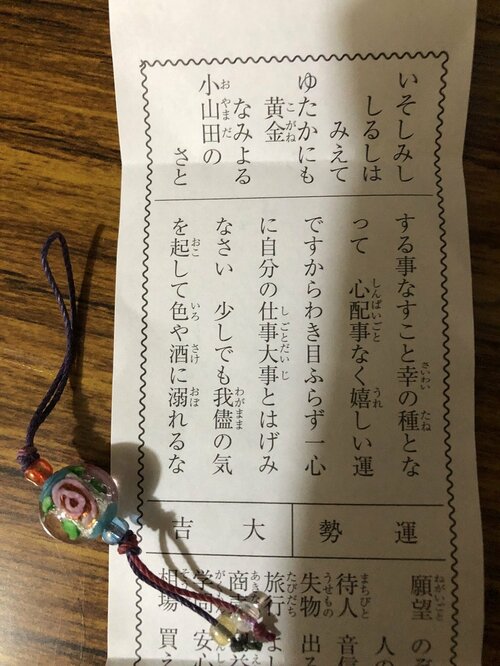 いそしみし
しるしは
みえて
ゆたかにも
黄金
なみよる
小山田の
さと
する事なすこと幸の種とな
って 心配事なく嬉しい運
ですからわき目ふらず一心
に自分の仕事大事とはげみ
なさい 少しでも我儘の気
を起して色や酒に溺れるな
運勢
大吉
願望 の
人の
待人 音信
失物 出
旅行 よし
商
学問 安心
相場 買え